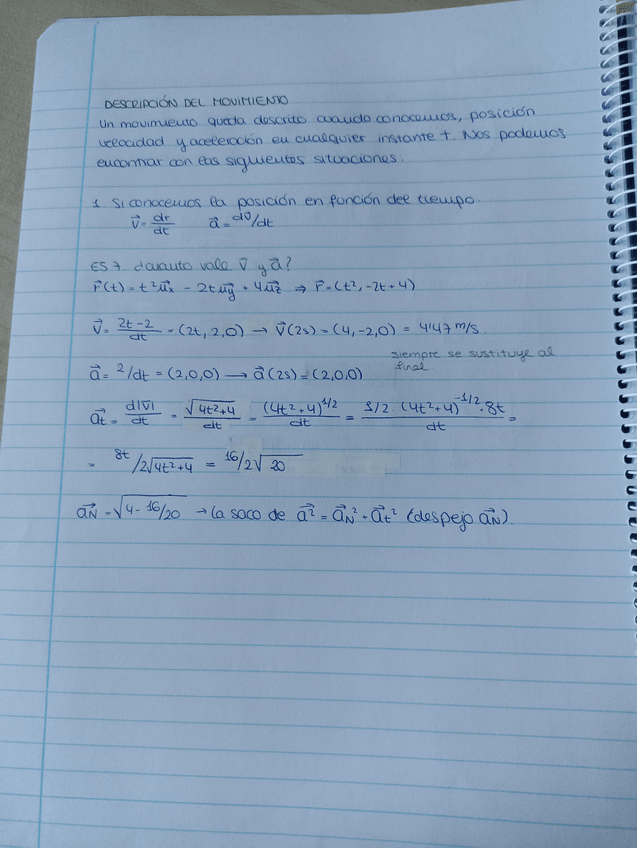 DESCRIPCIÓN DEL MOVIMIENTO
Un movimiento queda descrito cuando conocemos, posición
velocidad y aceleración en cualquier instante t. Nos podemos
encontrar con las siguientes situaciones.
1. Si conocemos la posición en función del tiempo.
v⃗ = dr/dt a⃗ = dv⃗/dt
ES 7 cuanto vale v⃗ y a⃗?
r⃗(t) = t²u⃗x - 2tu⃗y + 4u⃗z ⇒ r⃗ = (t², -2t+4)
v⃗ = 2t-2/dt = (2t, 2, 0) → v⃗(2s) = (4, -2, 0) = 4'47 m/s.
siempre se sustituye al
final
a⃗ = 2/dt = (2,0,0) → a⃗(2s) = (2,0,0)
a⃗t = d|v⃗|/dt = √4t²+4/dt = (4t²+4)^1/2/dt = 1/2 · (4t²+4)^-1/2 · 8t/dt =
= 8t/2√4t²+4 = 16/2√20
a⃗N = √4 - 16/20 → la saco de a⃗² = a⃗N² + a⃗t² (despejo a⃗N).